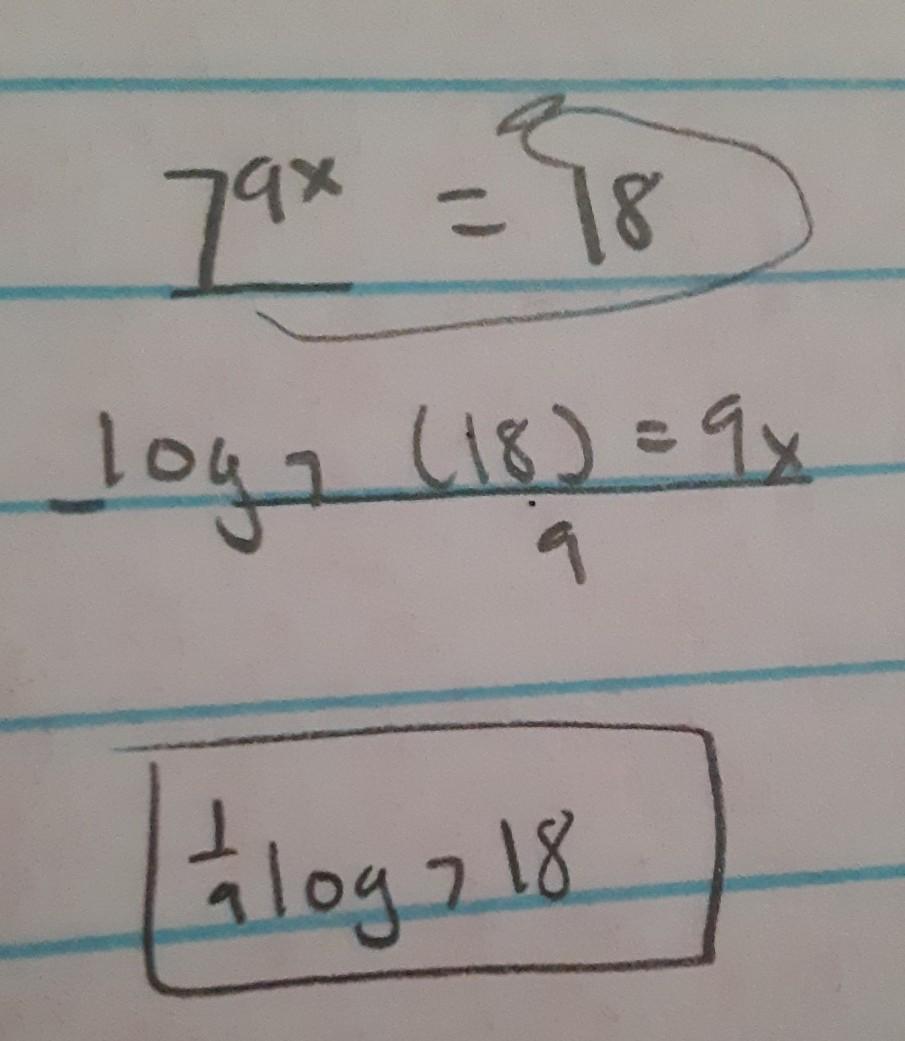 7^9x = 18
log 7 (18) = 9x
9
1/9 log 7 18